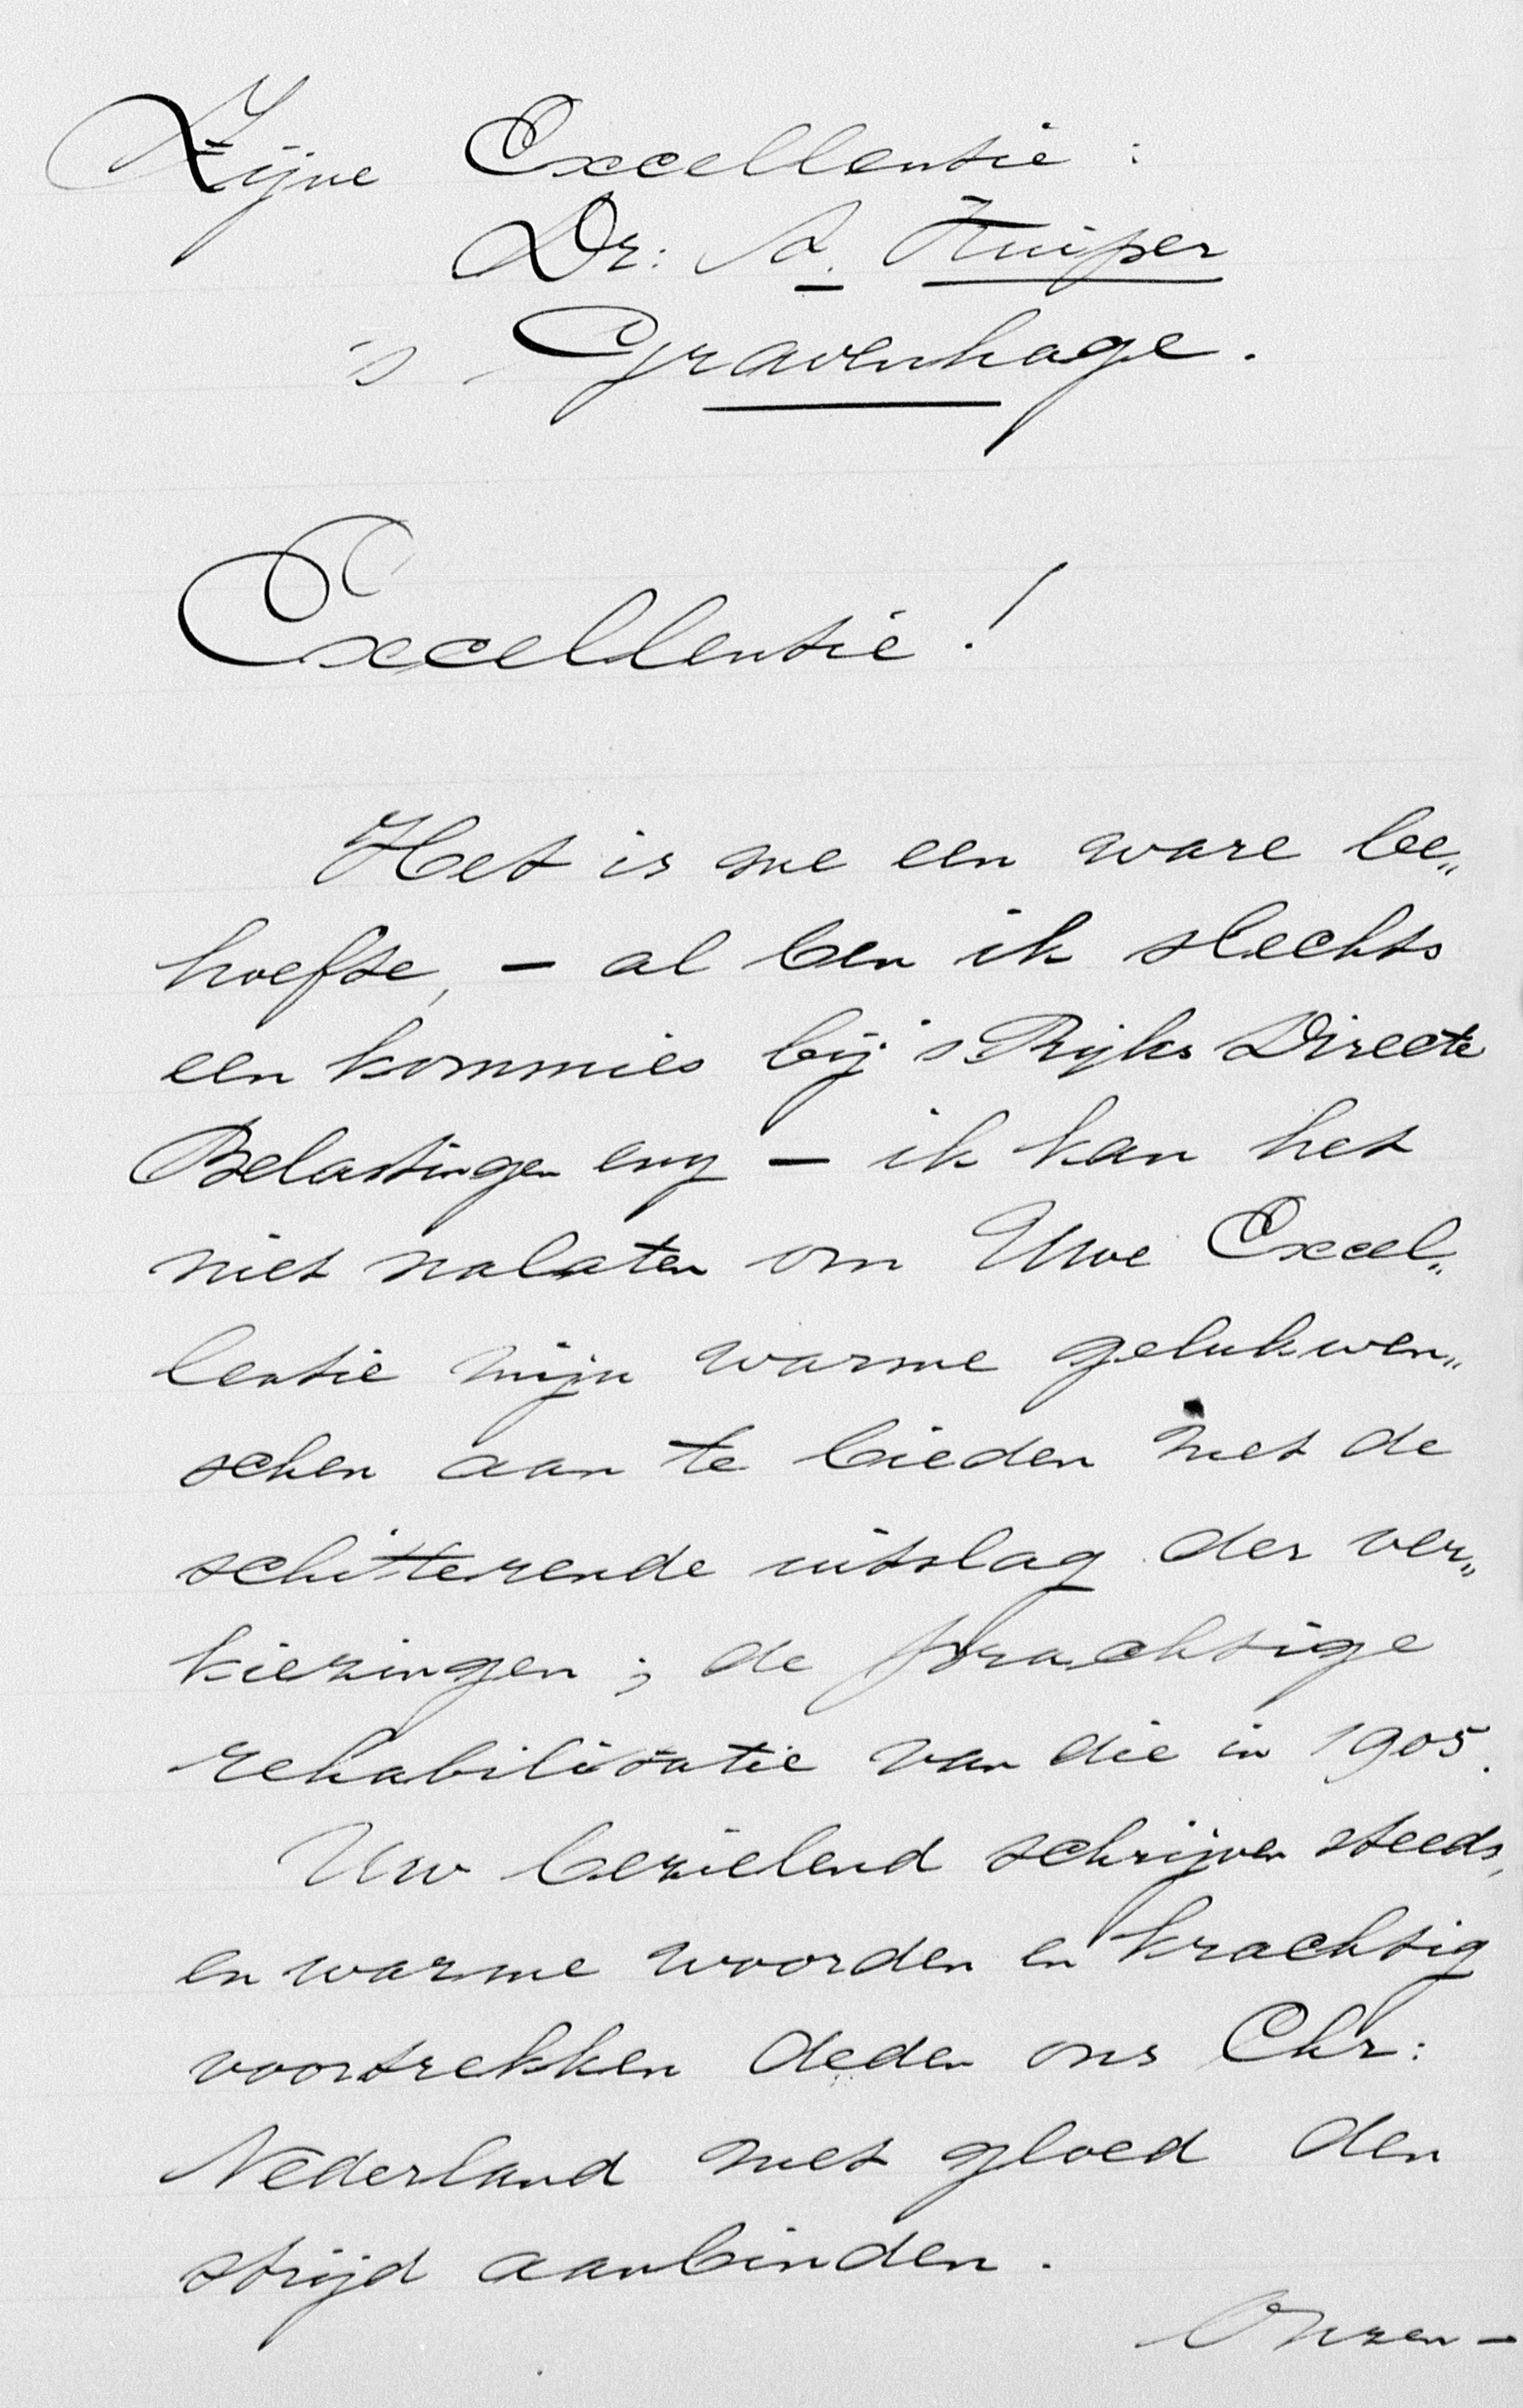 Zijne Excellentie:
Dr: A. Kuiper
's Gravenhage.
Excellentie!
Het is me een ware be„
hoefte, – al ben ik slechts
een kommies bij 's Rijks Directe
Belastingen enz – ik kan het
niet nalaten om Uwe Excel„
lentie mijn warme gelukwen„
schen aan te bieden met de
schitterende uitslag der ver„
kiezingen; de prachtige
rehabilisatie van die in 1905.
Uw bezielend schrijven steeds,
en warme woorden en krachtig
voortrekken deden ons Chr:
Nederland met gloed den
strijd aanbinden.
Onzen –